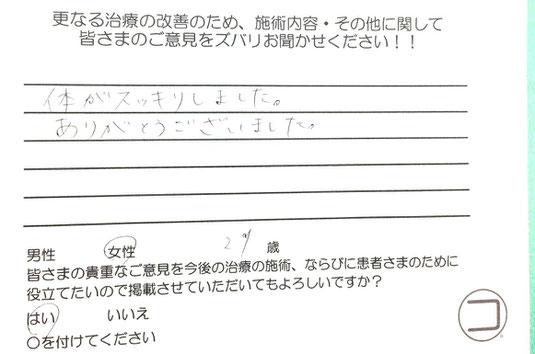 更なる治療の改善のため、施術内容・その他に関して
皆さまのご意見をズバリお聞かせください！！
体がスッキリしました。
ありがとうございました。
男性 女性 29 歳
皆さまの貴重なご意見を今後の治療の施術、ならびに患者さまのために
役立てたいので掲載させていただいてもよろしいですか？
はい いいえ
○を付けてください
コ